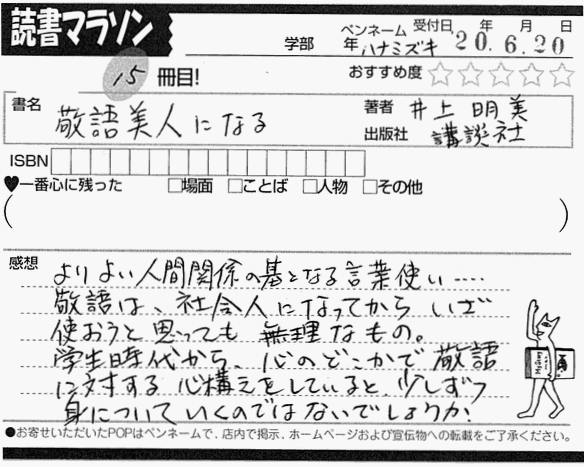 読書マラソン
学部 年
ペンネーム ハナミズキ
受付日 年 月 日
20.6.20
15 冊目!
おすすめ度 ☆☆☆☆☆
書名 敬語美人になる
著者 井上明美
出版社 講談社
ISBN
♥一番心に残った □場面 □ことば □人物 □その他
( )
感想
よりよい人間関係の基となる言葉使い……
敬語は、社会人になってから いざ
使おうと思っても 無理なもの。
学生時代から 心のどこかで 敬語
に対する心構えをしていると、少しずつ
身についていくのではないでしょうか?
●お寄せいただいたPOPはペンネームで、店内で掲示、ホームページおよび宣伝物への転載をご了承ください。